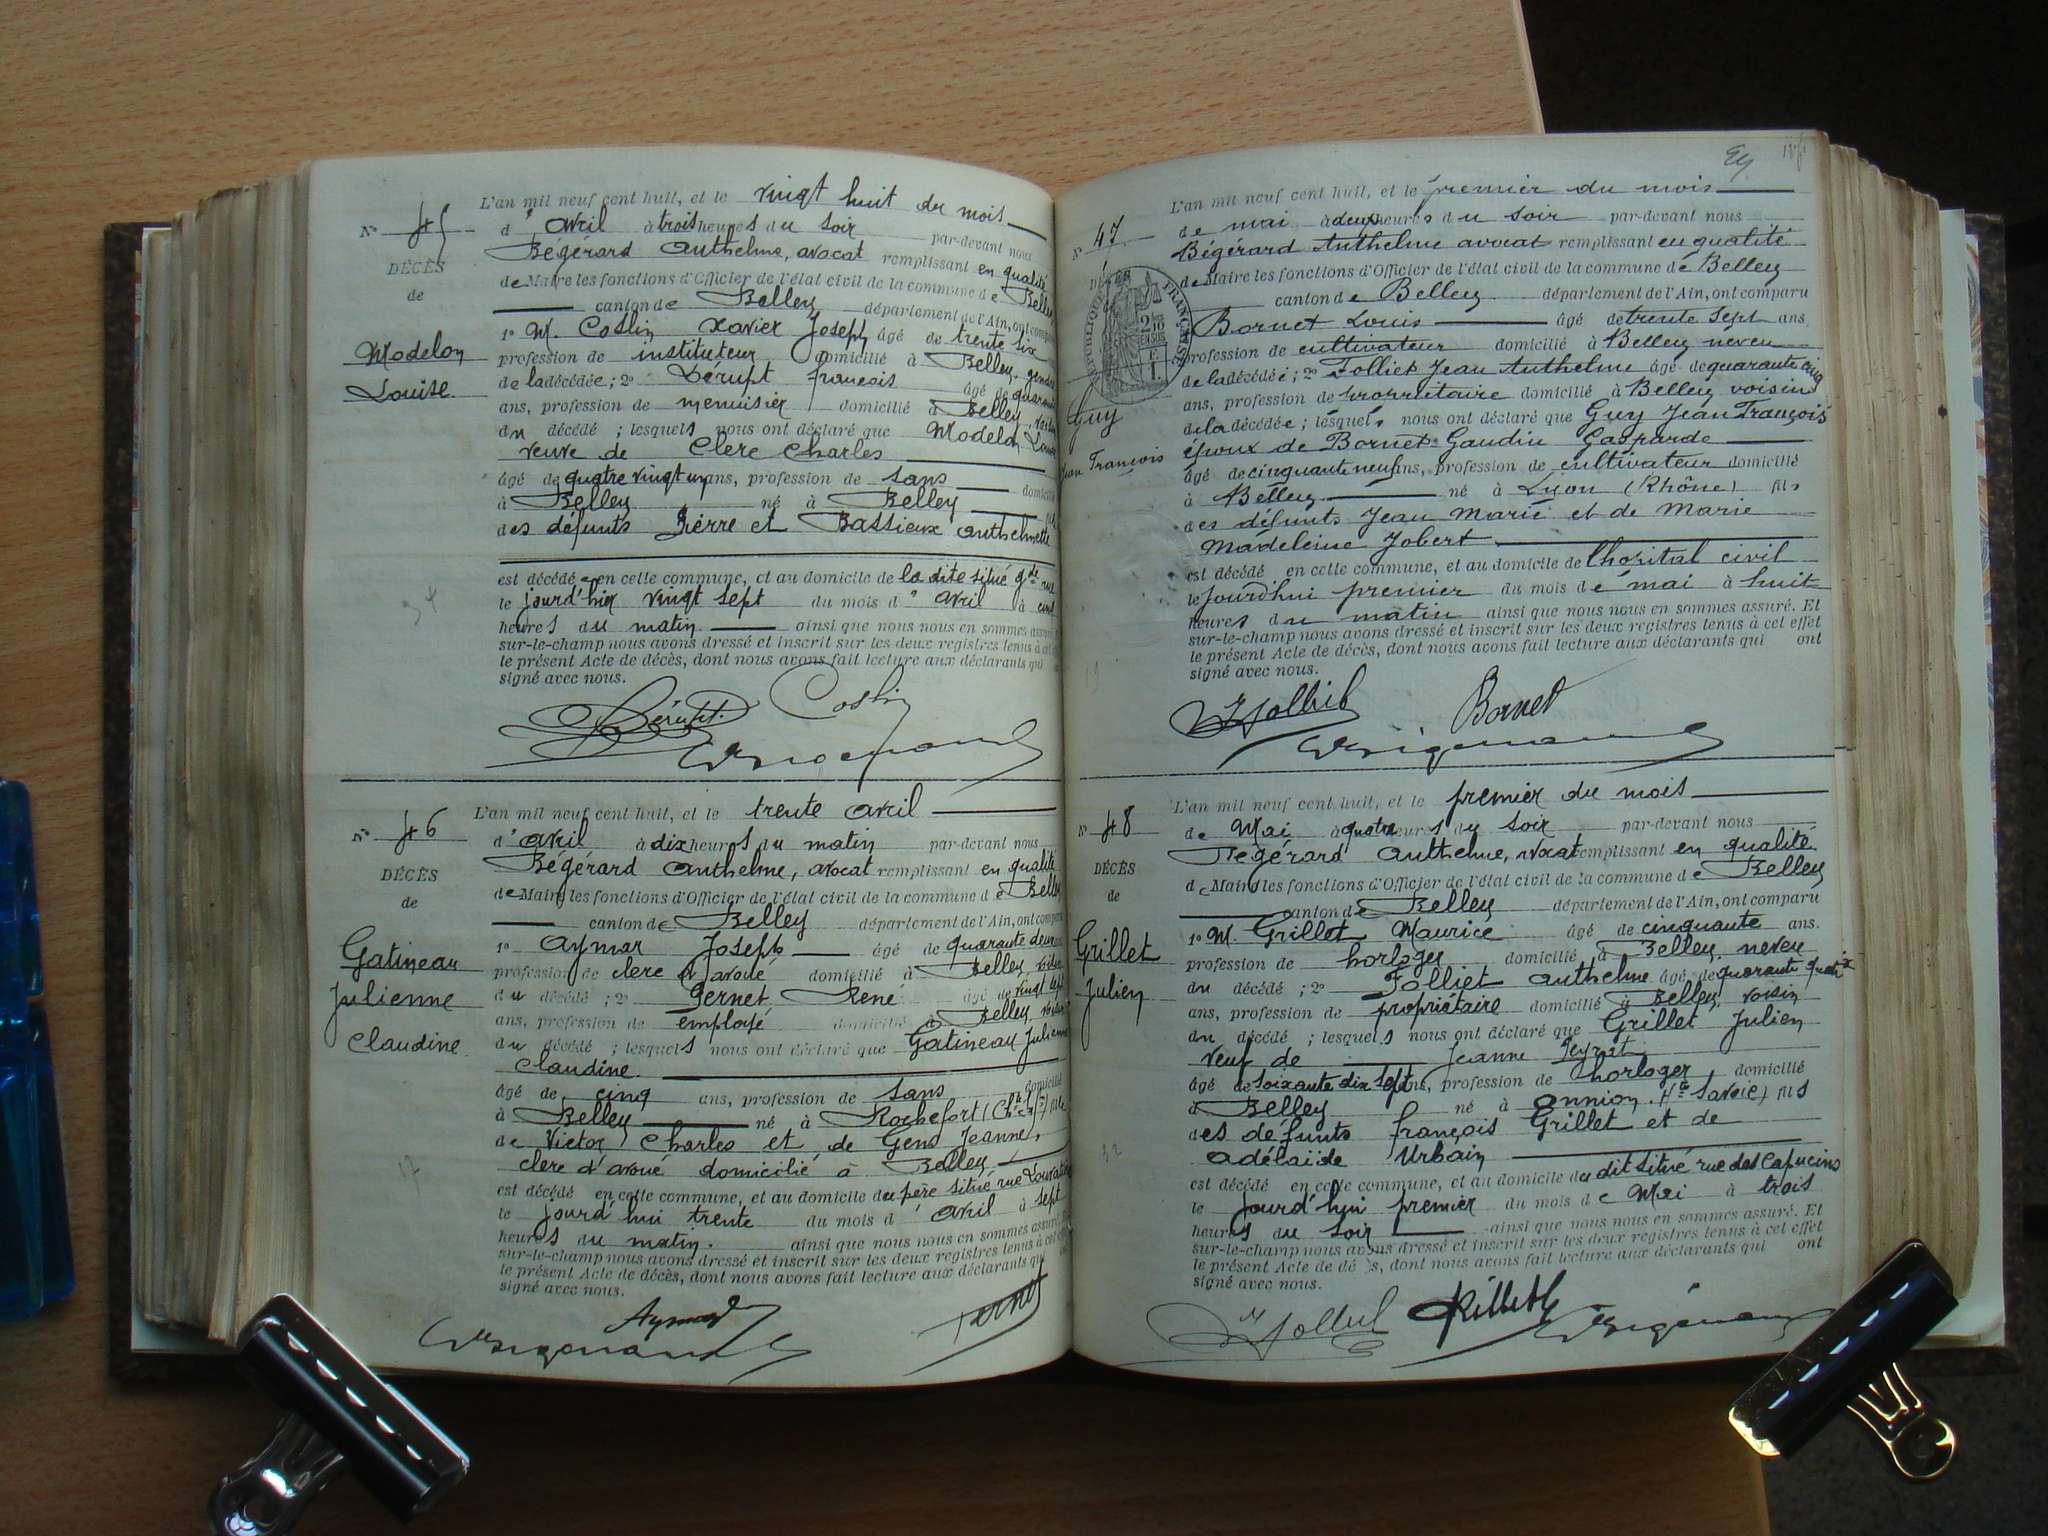 L'an mil neuf cent huit, et le vingt huit du mois
N° 45 d'avril à trois heures du soir par-devant nous
Bégérard Anthelme, avocat remplissant en qualité
DÉCÈS de Maire les fonctions d'Officier de l'état civil de la commune de Belley
de canton de Belley département de l'Ain, ont comparu
1° M. Coslin Xavier Joseph âgé de trente six
Modelon profession de instituteur domicilié à Belley, gendre
de la décédée; 2° Dérupt françois âgé de quarante
Louise ans, profession de menuisier domicilié à Belley, voisin
du décédé; lesquels nous ont déclaré que Modelon Louise
veuve de Clerc Charles
âgé de quatre vingt un ans, profession de sans domicilié
à Belley né à Belley
des défunts Pierre et Bassieux anthelmette
est décédée en cette commune, et au domicile de la dite situé gde rue
le jourd'hier vingt sept du mois d'avril à cinq
heures du matin. ainsi que nous nous en sommes assuré.
sur-le-champ nous avons dressé et inscrit sur les deux registres tenus à cet
le présent Acte de décès, dont nous avons fait lecture aux déclarants qui
signé avec nous.
Dérupt Coslin
L'an mil neuf cent huit, et le trente avril
N° 46 d'avril à dix heures du matin par-devant nous
Bégérard anthelme, avocat remplissant en qualité
DÉCÈS de Maire les fonctions d'Officier de l'état civil de la commune de Belley
de canton de Belley département de l'Ain, ont comparu
1° Aymar Joseph âgé de quarante deux
Gatineau profession de clerc d'avoué domicilié à Belley, voisin
Julienne du décédé; 2° Pernet René âgé de vingt sept
ans, profession de employé domicilié à Belley, voisin
Claudine du décédé; lesquels nous ont déclaré que Gatineau Julienne
Claudine
âgé de cinq ans, profession de sans domicilié
à Belley né à Rochefort fille
de Victor Charles et de Gend Jeanne,
clerc d'avoué domicilié à Belley
est décédé en cette commune, et au domicile du père situé rue
le jourd'hui trente du mois d'avril à sept
heures du matin. ainsi que nous nous en sommes assuré.
sur-le-champ nous avons dressé et inscrit sur les deux registres tenus à cet
le présent Acte de décès, dont nous avons fait lecture aux déclarants qui
signé avec nous.
Aymar Pernet
L'an mil neuf cent huit, et le premier du mois
N° 47 de mai à deux heures du soir par-devant nous
Bégérard Anthelme avocat remplissant en qualité
DÉCÈS de Maire les fonctions d'Officier de l'état civil de la commune de Belley
RÉPUBLIQUE FRANÇAISE canton de Belley département de l'Ain, ont comparu
Bornet Louis âgé de trente sept ans,
profession de cultivateur domicilié à Belley neveu
de la décédée; 2° Folliet Jean Anthelme âgé de quarante cinq
ans, profession de propriétaire domicilié à Belley voisin
Guy de la décédée; lesquels nous ont déclaré que Guy Jean François
Jean François époux de Bornet-Gaudin Gasparde
âgé de cinquante neuf ans, profession de cultivateur domicilié
à Belley né à Lyon (Rhône) fils
des défunts Jean Marie et de Marie
Madeleine Jobert
est décédé en cette commune, et au domicile de l'hopital civil
le jourdhui premier du mois de mai à huit
heures du matin ainsi que nous nous en sommes assuré. Et
sur-le-champ nous avons dressé et inscrit sur les deux registres tenus à cet effet
le présent Acte de décès, dont nous avons fait lecture aux déclarants qui ont
signé avec nous.
Folliet Bornet
L'an mil neuf cent huit, et le premier du mois
N° 48 de Mai à quatre heures du soir par-devant nous
Bégérard anthelme, avocat remplissant en qualité
DÉCÈS de Maire les fonctions d'Officier de l'état civil de la commune de Belley
de canton de Belley département de l'Ain, ont comparu
1° M. Grillet Maurice âgé de cinquante ans.
Grillet profession de horloger domicilié à Belley, neveu
Julien du décédé; 2° Folliet anthelme âgé de quarante quatre
ans, profession de propriétaire domicilié à Belley, voisin
du décédé; lesquels nous ont déclaré que Grillet Julien
veuf de Jeanne Peyret
âgé de soixante dix sept ans, profession de horloger domicilié
à Belley né à onnion. (Hte Savoie) fils
des défunts françois Grillet et de
adélaïde Urbain
est décédé en cette commune, et au domicile du dit situé rue des Capucins
le jourd'hui premier du mois de Mai à trois
heures du soir ainsi que nous nous en sommes assuré. Et
sur-le-champ nous avons dressé et inscrit sur les deux registres tenus à cet effet
le présent Acte de décès, dont nous avons fait lecture aux déclarants qui ont
signé avec nous.
Folliet Grillet